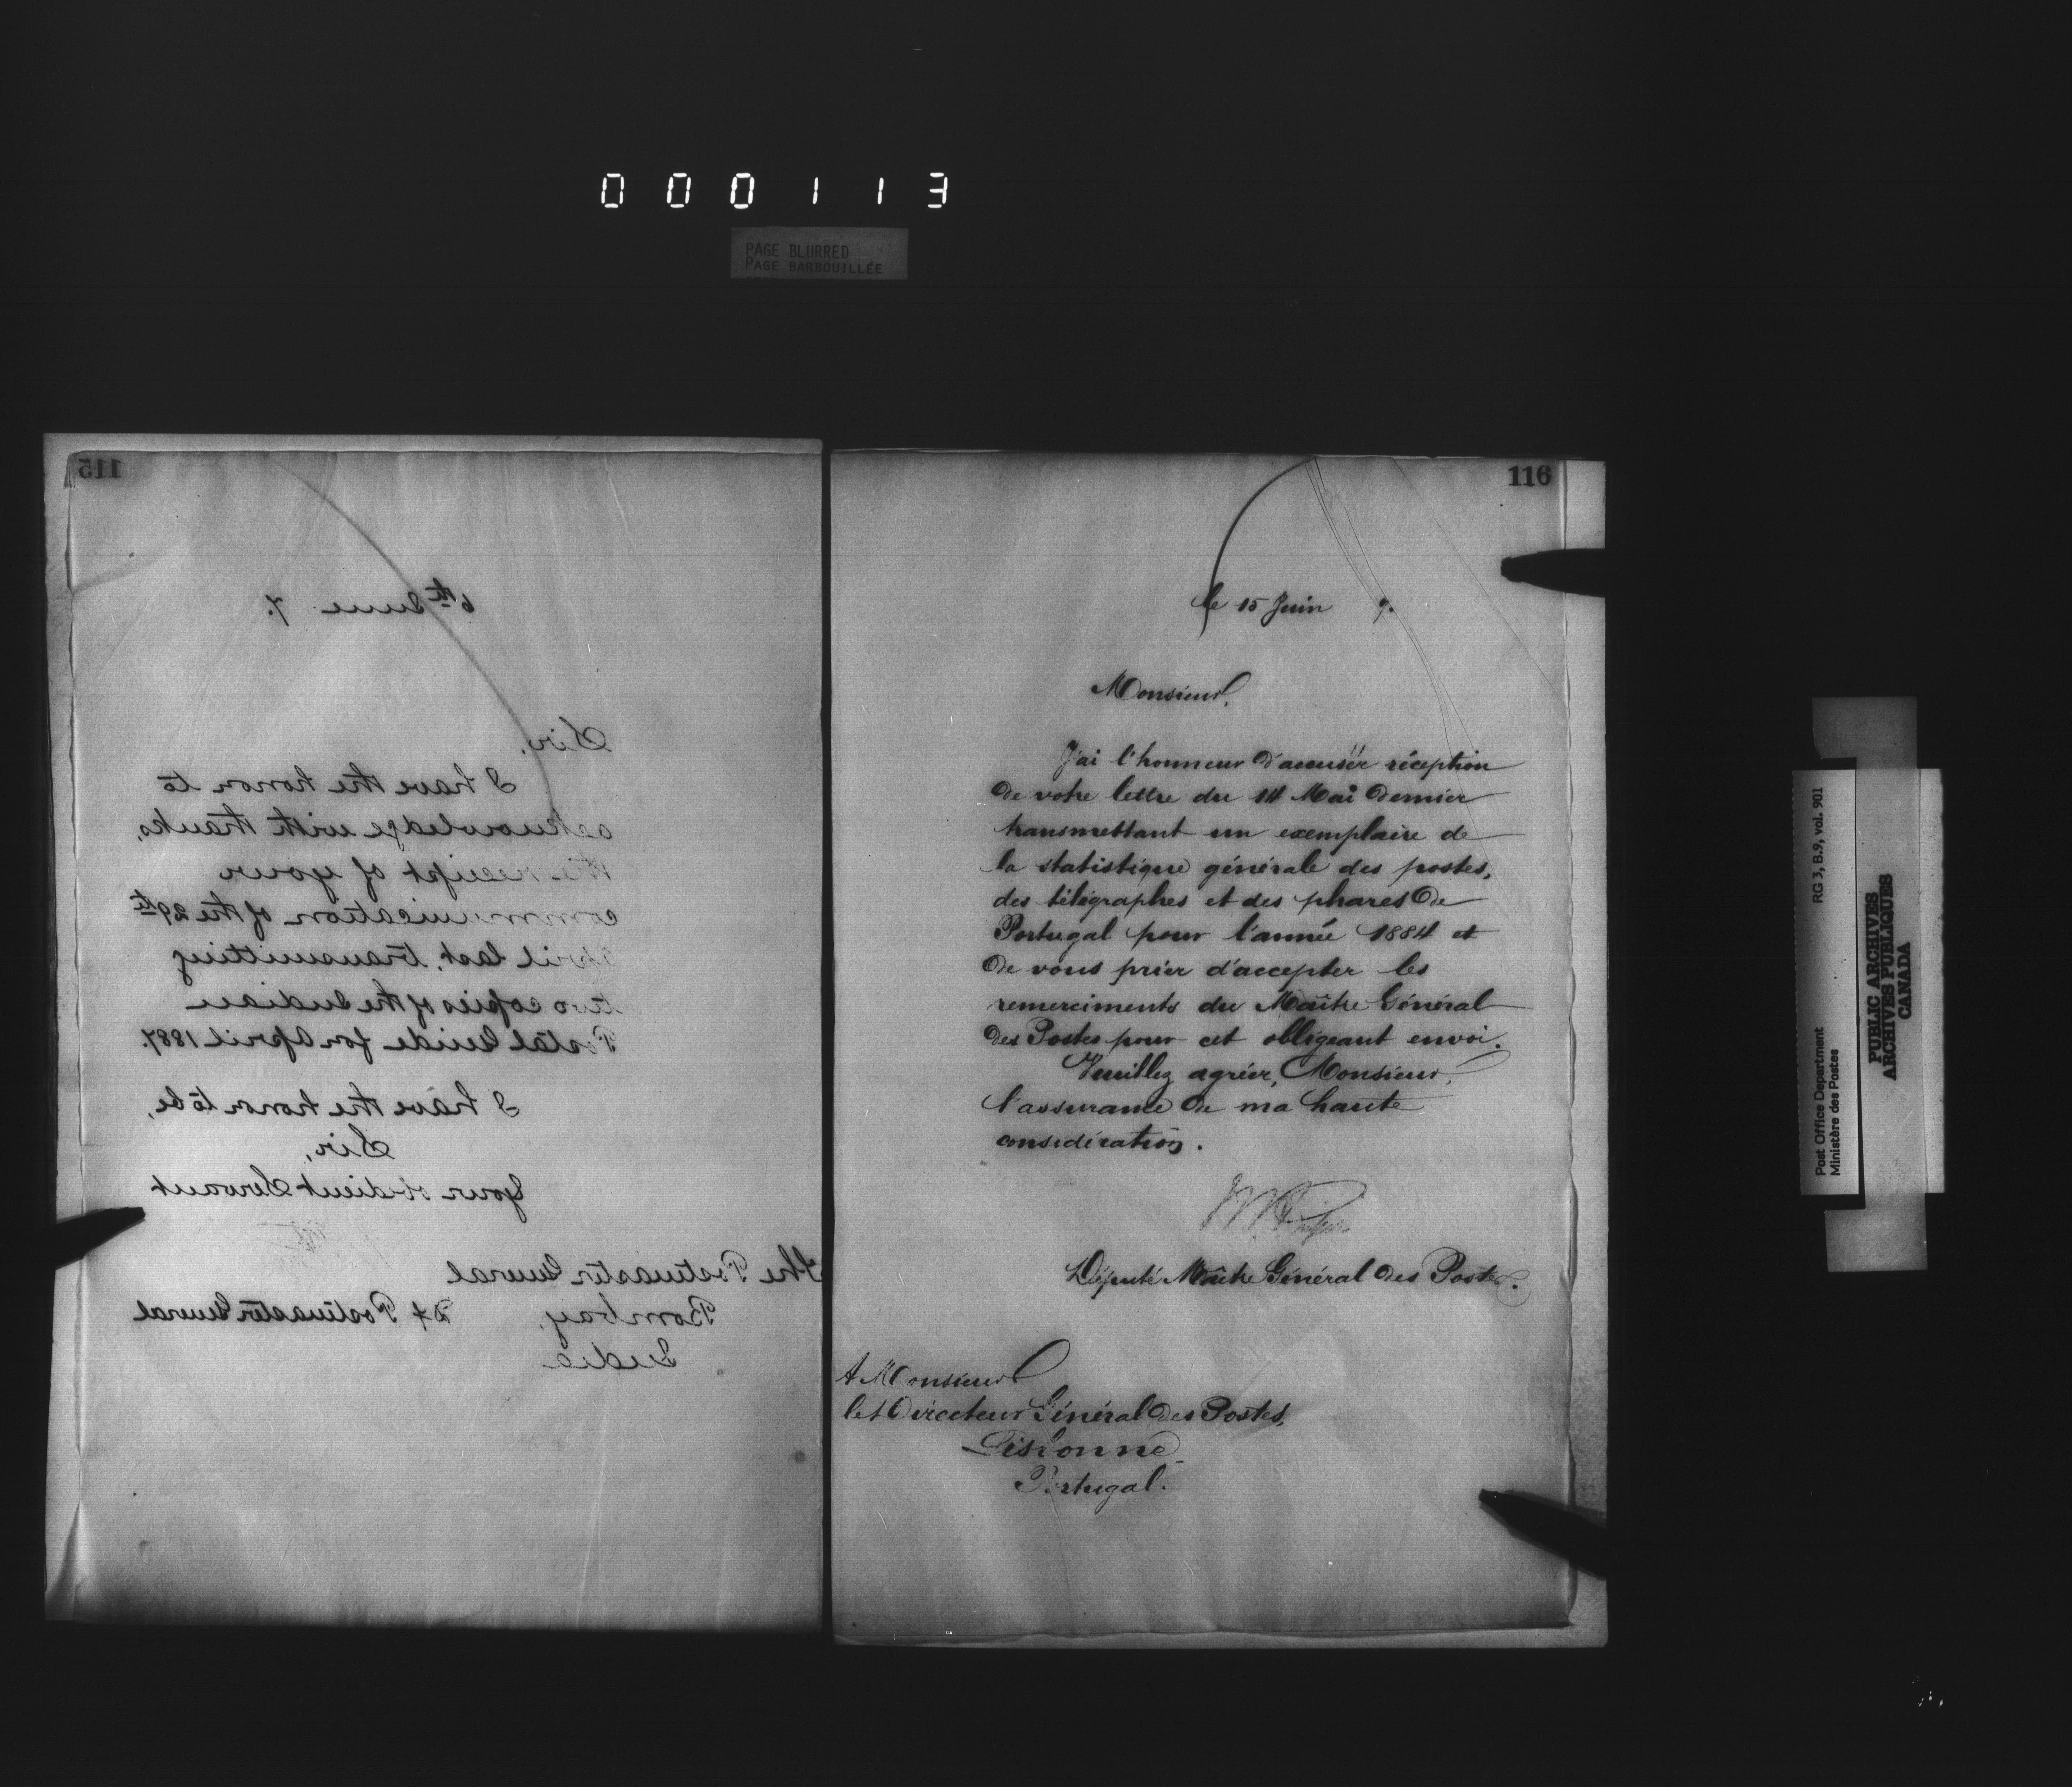 000113
PAGE BLURRED
PAGE BARBOUILLÉE
115
6th June 7.
Sir,
I have the honor to
acknowledge with thanks,
the receipt of your
communication of the 29th
April last, transmitting
two copies of the Indian
Postal Guide for April 1887.
I have the honor to be,
Sir,
Your obedient Servant
The Postmaster General
Bombay,
India
Dy Postmaster General
116
le 15 Juin 7.
Monsieur,
J'ai l'honneur d'accuser réception
de votre lettre du 14 Mai dernier
transmettant un exemplaire de
la statistique générale des postes,
des télégraphes et des phares de
Portugal pour l'année 1884 et
de vous prier d'accepter les
remerciments du Maître Général
des Postes pour cet obligeant envoi.
Veuillez agréer, Monsieur,
l'assurance de ma haute
considération.
Député Maître Général des Postes.
A Monsieur
le Directeur Général des Postes,
Lisbonne
Portugal.
Post Office Department RG 3, B.9, vol. 901
Ministère des Postes
PUBLIC ARCHIVES
ARCHIVES PUBLIQUES
CANADA